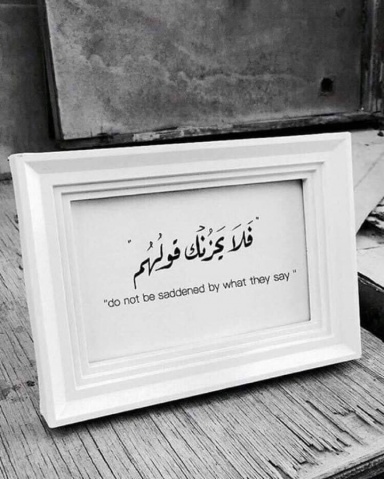 "فَلَا يَحْزُنْكَ قَوْلُهُمْ"
"do not be saddened by what they say"